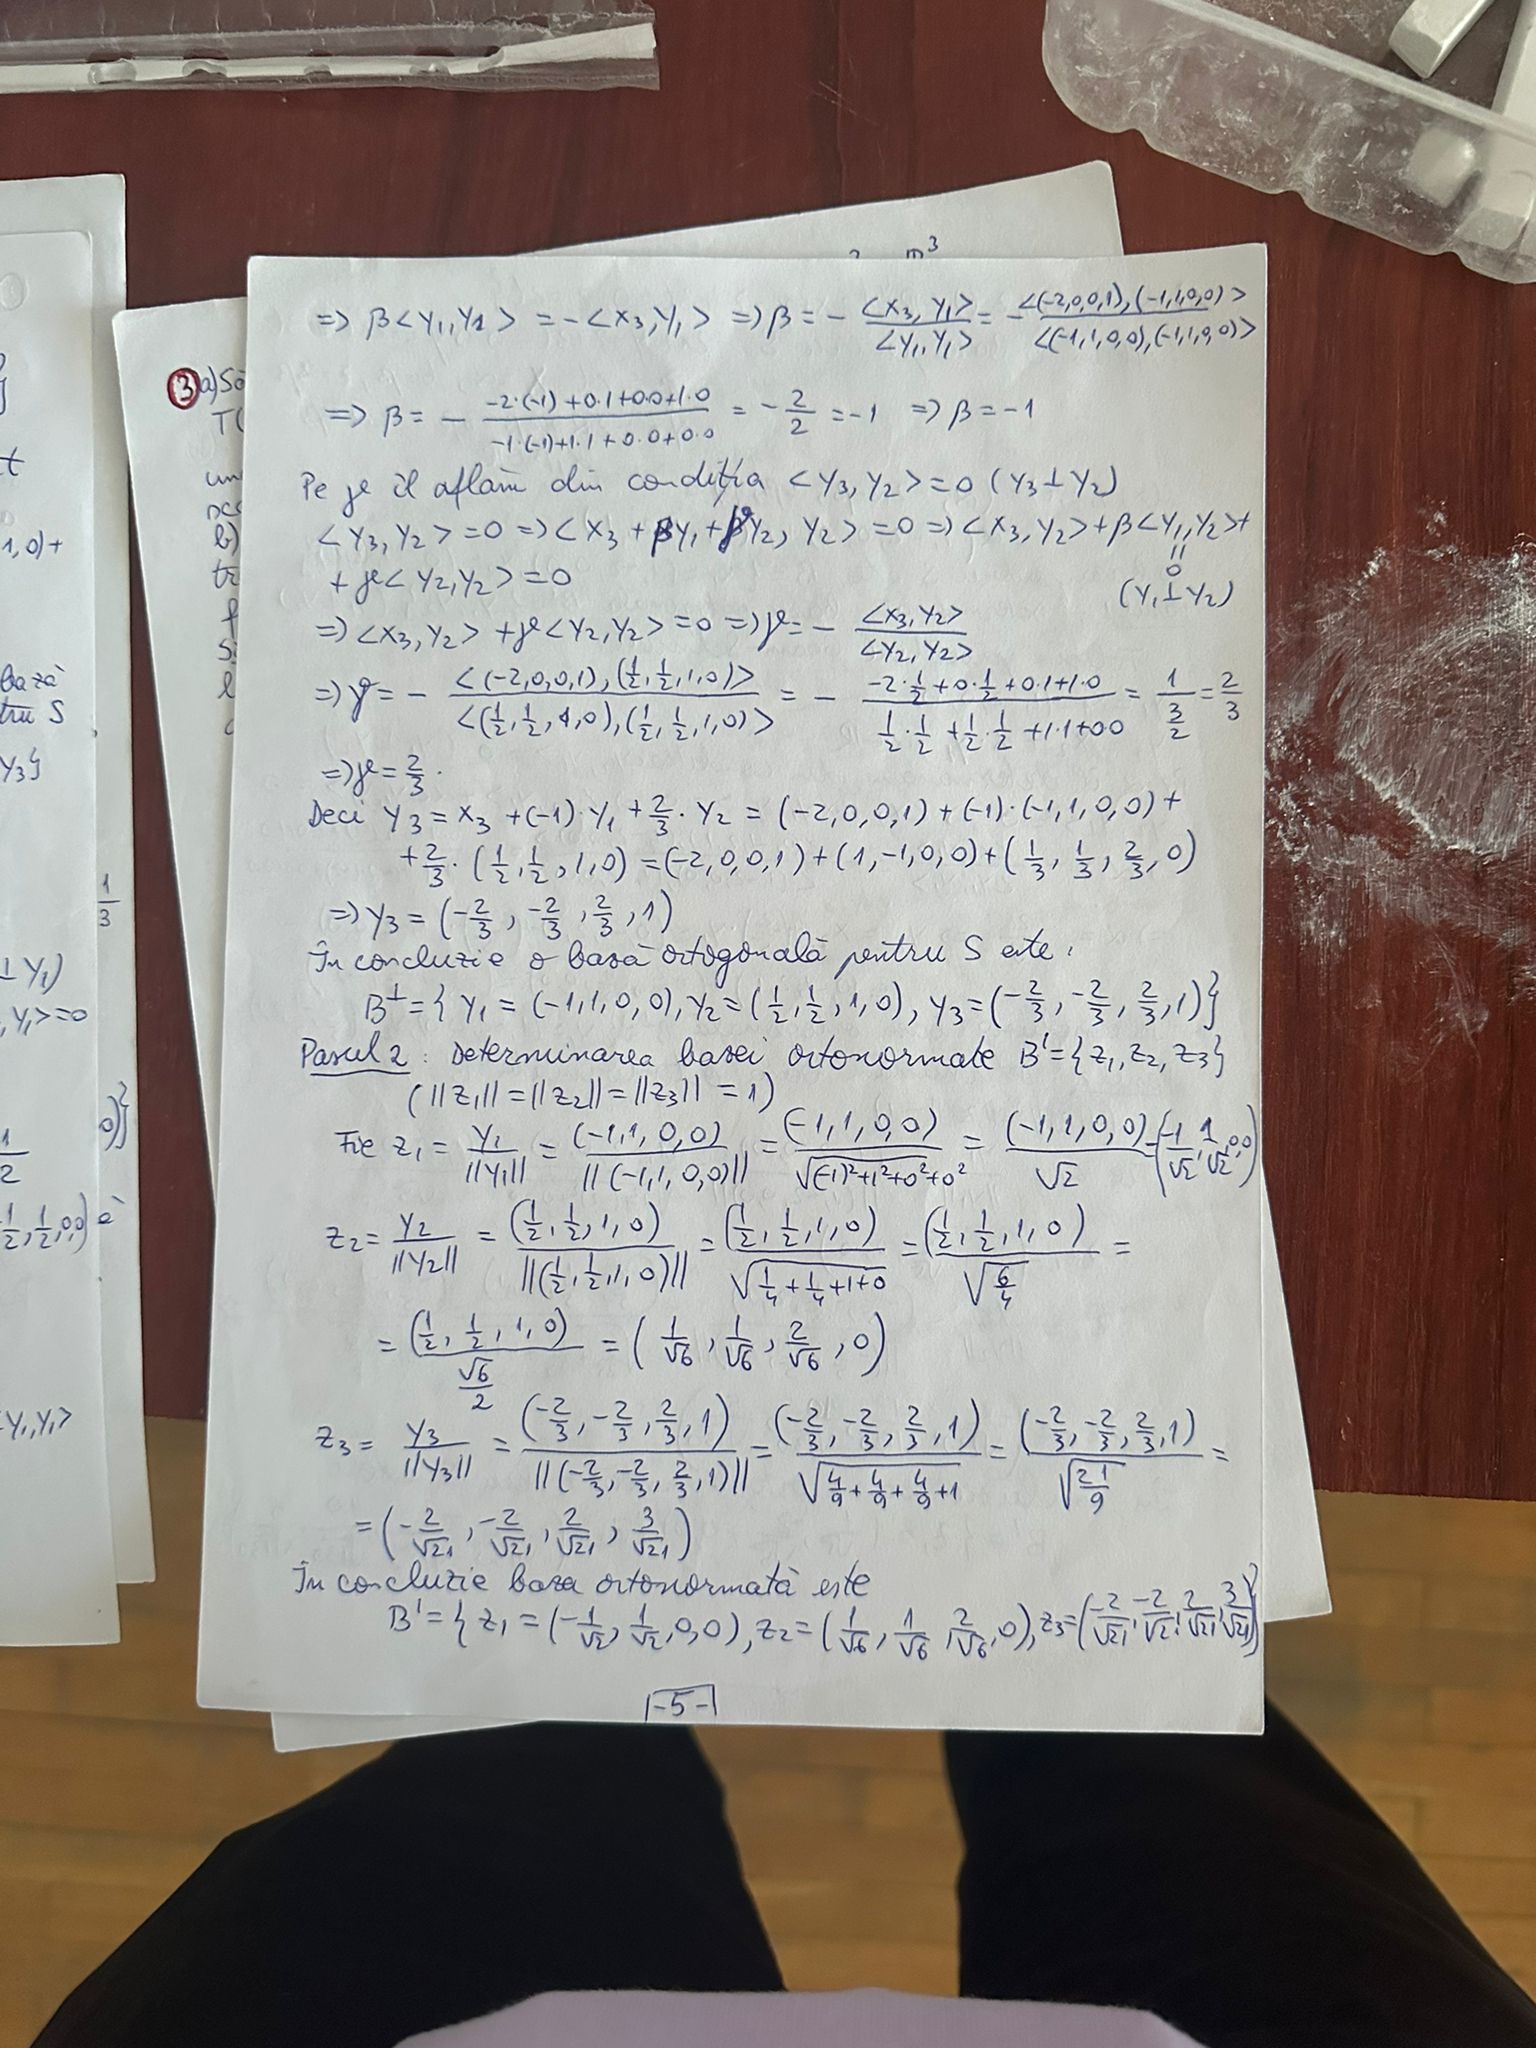 => β<Y₁,Y₁> = -<X₃,Y₁> => β = - <X₃,Y₁>/<Y₁,Y₁> = - <(-2,0,0,1),(-1,1,0,0)>/<(-1,1,0,0),(-1,1,0,0)>
=> β = - (-2·(-1)+0·1+0·0+1·0)/(-1·(-1)+1·1+0·0+0·0) = - 2/2 = -1 => β = -1
Pe γ îl aflăm din condiția <Y₃,Y₂> = 0 (Y₃⊥Y₂)
<Y₃,Y₂> = 0 => <X₃ + βY₁ + γY₂, Y₂> = 0 => <X₃,Y₂> + β<Y₁,Y₂> +
"
0
+ γ<Y₂,Y₂> = 0
(Y₁⊥Y₂)
=> <X₃,Y₂> + γ<Y₂,Y₂> = 0 => γ = - <X₃,Y₂>/<Y₂,Y₂>
=> γ = - <(-2,0,0,1),(1/2,1/2,1,0)>/<(1/2,1/2,1,0),(1/2,1/2,1,0)> = - (-2·1/2+0·1/2+0·1+1·0)/(1/2·1/2+1/2·1/2+1·1+0·0) = 1/(3/2) = 2/3
=> γ = 2/3.
Deci Y₃ = X₃ + (-1)·Y₁ + 2/3·Y₂ = (-2,0,0,1) + (-1)·(-1,1,0,0) +
+ 2/3·(1/2,1/2,1,0) = (-2,0,0,1) + (1,-1,0,0) + (1/3,1/3,2/3,0)
=> Y₃ = (-2/3,-2/3,2/3,1)
În concluzie o bază ortogonală pentru S este:
B⊥ = { Y₁ = (-1,1,0,0), Y₂ = (1/2,1/2,1,0), Y₃ = (-2/3,-2/3,2/3,1)}
Pasul 2: Determinarea bazei ortonormate B' = {z₁,z₂,z₃}
(||z₁|| = ||z₂|| = ||z₃|| = 1)
Fie z₁ = Y₁/||Y₁|| = (-1,1,0,0)/||(-1,1,0,0)|| = (-1,1,0,0)/√((-1)²+1²+0²+0²) = (-1,1,0,0)/√2 = (-1/√2,1/√2,0,0)
z₂ = Y₂/||Y₂|| = (1/2,1/2,1,0)/||(1/2,1/2,1,0)|| = (1/2,1/2,1,0)/√(1/4+1/4+1+0) = (1/2,1/2,1,0)/√(6/4) =
= (1/2,1/2,1,0)/(√6/2) = (1/√6,1/√6,2/√6,0)
z₃ = Y₃/||Y₃|| = (-2/3,-2/3,2/3,1)/||(-2/3,-2/3,2/3,1)|| = (-2/3,-2/3,2/3,1)/√(4/9+4/9+4/9+1) = (-2/3,-2/3,2/3,1)/√(21/9) =
= (-2/√21,-2/√21,2/√21,3/√21)
În concluzie baza ortonormată este
B' = { z₁ = (-1/√2,1/√2,0,0), z₂ = (1/√6,1/√6,2/√6,0), z₃ = (-2/√21,-2/√21,2/√21,3/√21)}
-5-
③ a) Să
T(
b)
1,0)+
bază
tru S
Y₃}
1/3
⊥ Y₁)
, Y₁> = 0
0)}
1/2
1/2,1/2,0,0)
Y₁,Y₁>